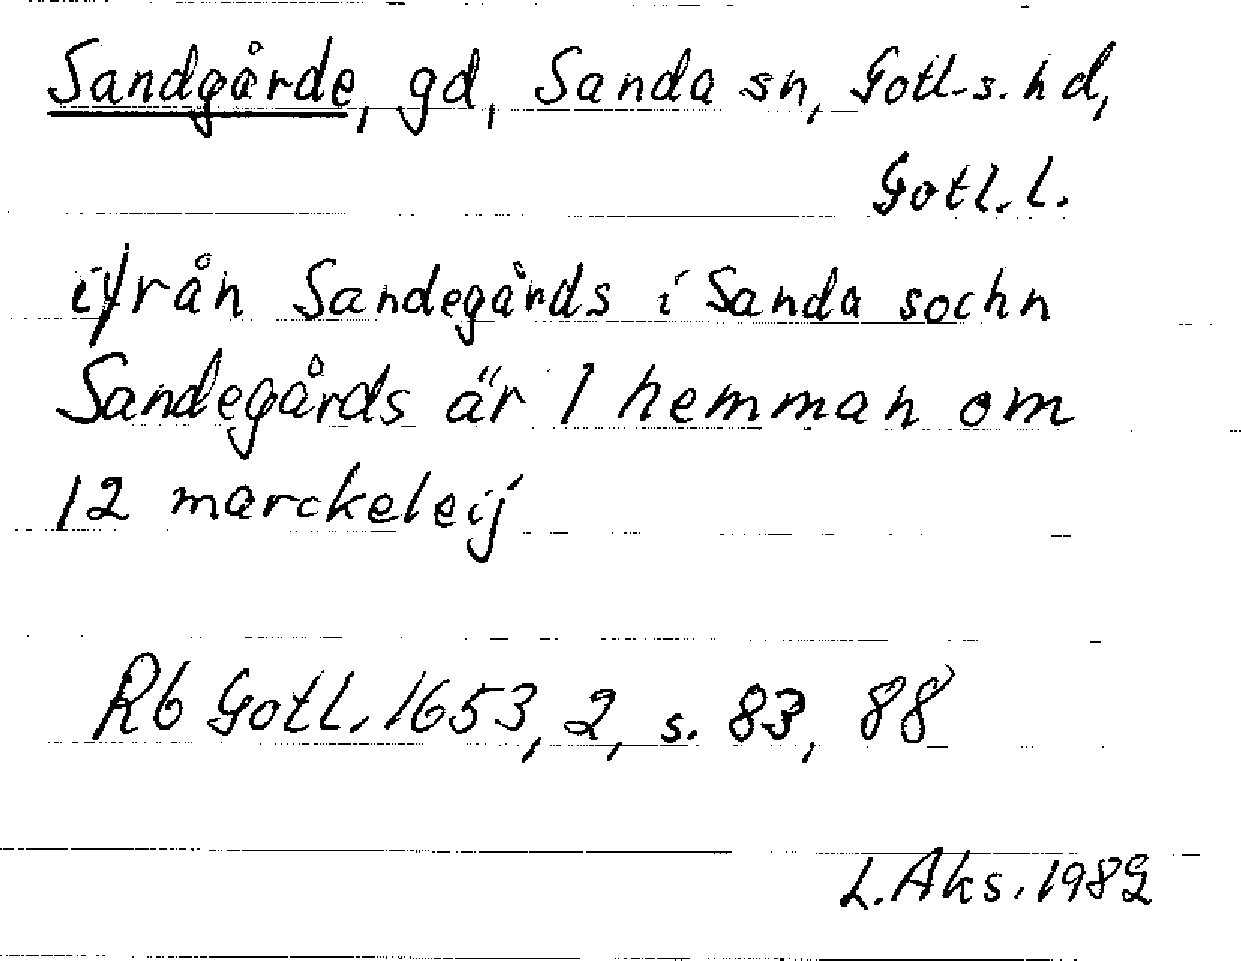 Sandgårde, gd, Sanda sn, Gotl. s. hd,
Gotl. l.
ifrån Sandegårds i Sanda sochn
Sandegårds är 1 hemman om
12 marckeleij
Rb Gotl. 1653, 2, s. 83, 88
L. Aks. 1982